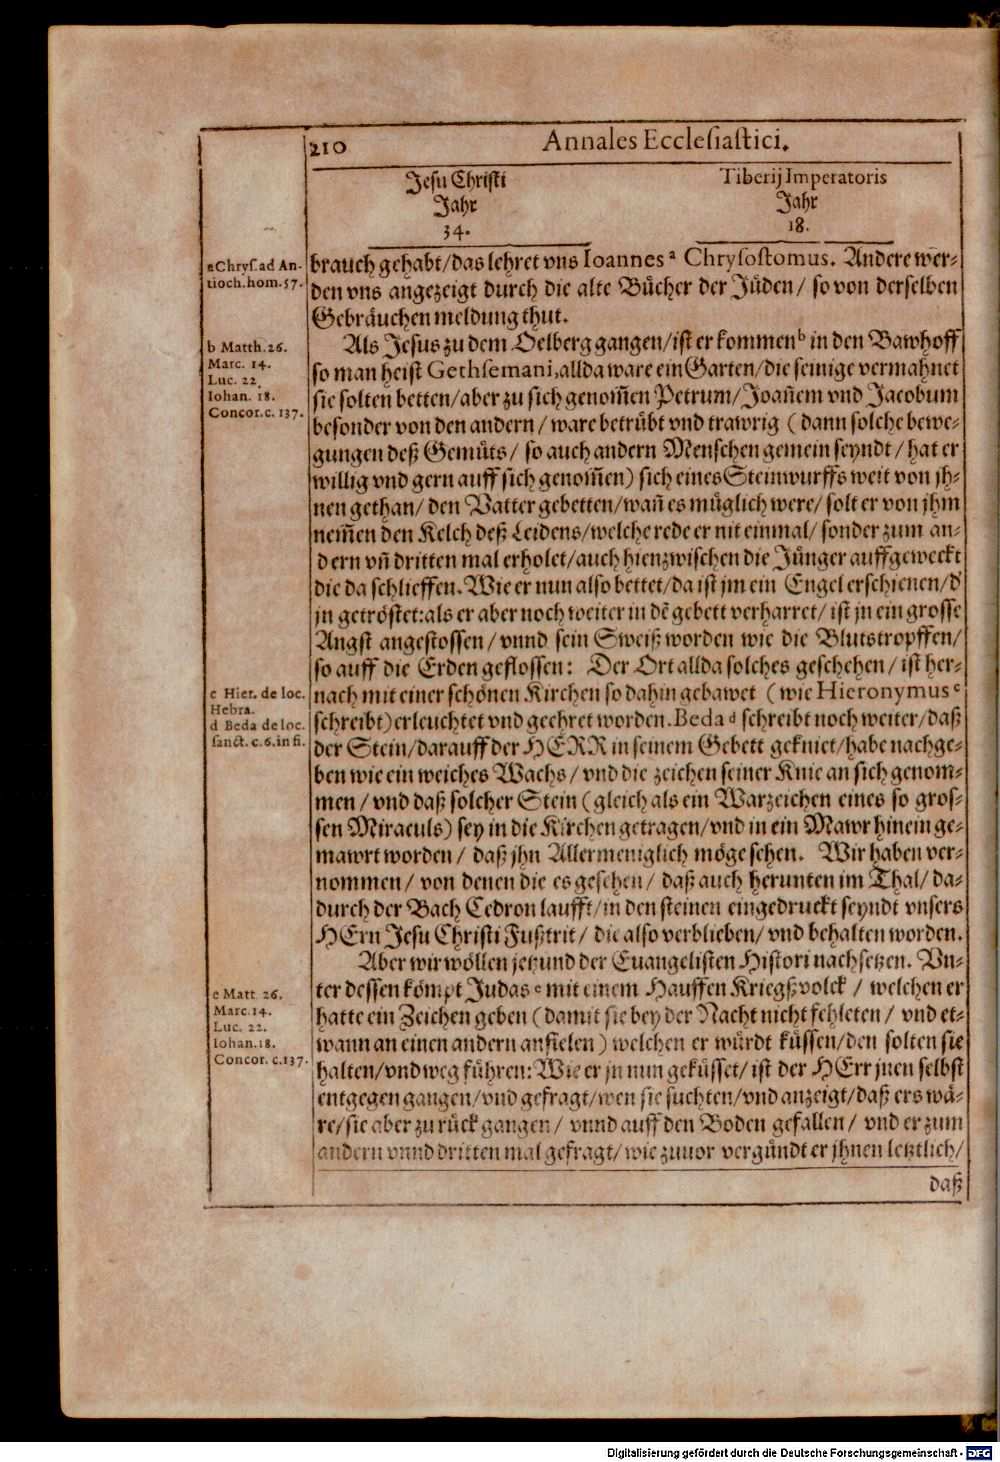 210 Annales Ecclesiastici.
Jesu Christi
Jahr
34.
Tiberij Imperatoris
Jahr
18.
a Chrys. ad An-
tioch. hom. 57.
brauch gehabt/ das lehret vns Ioannes a Chrysostomus. Andere wer-
den vns angezeigt durch die alte Bücher der Jüden/ so von derselben
Gebräuchen meldung thut.
b Matth. 26.
Marc. 14.
Luc. 22.
Iohan. 18.
Concor. c. 137.
Als Jesus zu dem Oelberg gangen/ ist er kommen b in den Bawhoff
so man heist Gethsemani, allda ware ein Garten/ die seinige vermahnet
sie solten betten/ aber zu sich genom̃en Petrum/ Joañem vnd Jacobum
besonder von den andern/ ware betrübt vnd trawrig (dann solche bewe-
gungen deß Gemüts/ so auch andern Menschen gemein seyndt/ hat er
willig vnd gern auff sich genom̃en) sich eines Steinwurffs weit von jh-
nen gethan/ den Vatter gebetten/ wañ es müglich were/ solt er von jhm
nem̃en den Kelch deß Leidens/ welche rede er nit einmal/ sonder zum an-
dern vñ dritten mal erholet/ auch hienzwischen die Jünger auffgeweckt
die da schlieffen. Wie er nun also bettet/ da ist jm ein Engel erschienen/ d'
jn getröstet: als er aber noch weiter in dẽ gebett verharret/ ist jn ein grosse
Angst angestossen/ vnnd sein Sweiß worden wie die Blutstropffen/
so auff die Erden geflossen: Der Ort allda solches geschehen/ ist her-
c Hier. de loc.
Hebra.
d Beda de loc.
sanct. c. 6. in fi.
nach mit einer schönen Kirchen so dahin gebawet (wie Hieronymus c
schreibt) erleuchtet vnd geehret worden. Beda d schreibt noch weiter/ daß
der Stein/ darauff der HERR in seinem Gebett gekniet/ habe nachge-
ben wie ein weiches Wachs/ vnd die zeichen seiner Knie an sich genom-
men/ vnd daß solcher Stein (gleich als ein Warzeichen eines so gros-
sen Miraculs) sey in die Kirchen getragen/ vnd in ein Mawr hinein ge-
mawrt worden/ daß jhn Allermeniglich möge sehen. Wir haben ver-
nommen/ von denen die es gesehen/ daß auch herunten im Thal/ da-
durch der Bach Cedron laufft/ in den steinen eingedruckt seyndt vnsers
HErn Jesu Christi Fußtrit/ die also verblieben/ vnd behalten worden.
Aber wir wöllen jetzund der Euangelisten Histori nachsetzen. Vn-
e Matt. 26.
Marc. 14.
Luc. 22.
Iohan. 18.
Concor. c. 137.
ter dessen kömpt Judas e mit einem Hauffen Kriegßvolck/ welchen er
hatte ein Zeichen geben (damit sie bey der Nacht nicht fehleten/ vnd et-
wann an einen andern anfielen) welchen er würdt küssen/ den solten sie
halten/ vnd weg führen: Wie er jn nun geküsset/ ist der HErr jnen selbst
entgegen gangen/ vnd gefragt/ wen sie suchten/ vnd anzeigt/ daß ers wä-
re/ sie aber zu rück gangen/ vnnd auff den Boden gefallen/ vnd er zum
andern vnnd dritten mal gefragt/ wie zuuor vergündt er jhnen letztlich/
daß
Digitalisierung gefördert durch die Deutsche Forschungsgemeinschaft - DFG